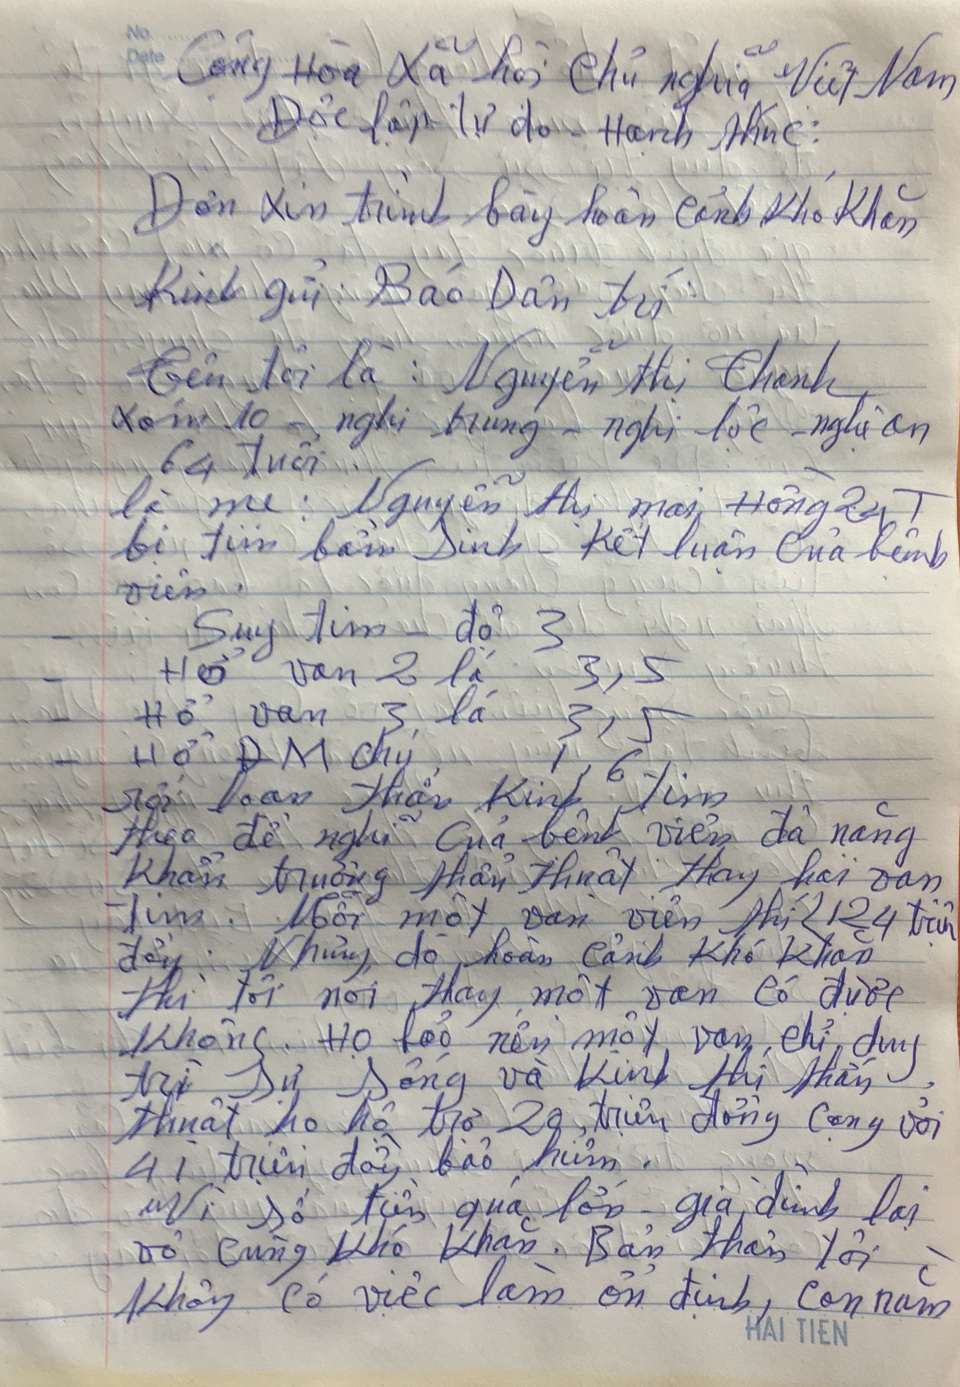 No.
Date
Cộng Hòa Xã hội Chủ nghĩa Việt Nam
Độc lập Tự do - Hạnh Phúc:
Đơn xin trình bày hoàn cảnh khó khăn
Kính gửi: Báo Dân trí
Tên tôi là: Nguyễn thị Chanh
xóm 10 - nghi trung - nghi lộc - nghệ an
64 tuổi.
là mẹ: Nguyễn thị mai Hồng 24T
bị tim bẩm sinh - Kết luận của bệnh
viện.
- Suy tim - độ 3
- Hở van 2 lá 3,5
- Hở van 3 lá 3,5
- Hở ĐM chủ 1,6
rối loạn thần kinh tim
theo đề nghị của bệnh viện đà nẵng
khẩn trương phẩu thuật thay hai van
Tim. Mỗi một van viện phí 124 triệu
đồng. Nhưng do hoàn cảnh khó khăn
thì tôi nói thay một van có được
không. Họ bảo nếu một van chỉ duy
trì sự sống và kinh phí phẩu
thuật họ hỗ trợ 20 triệu đồng cộng với
41 triệu đồng bảo hiểm.
Vì số tiền quá lớn - gia đình lại
vô cùng khó khăn. Bản thân tôi
không có việc làm ổn định, con nằm
HẢI TIẾN